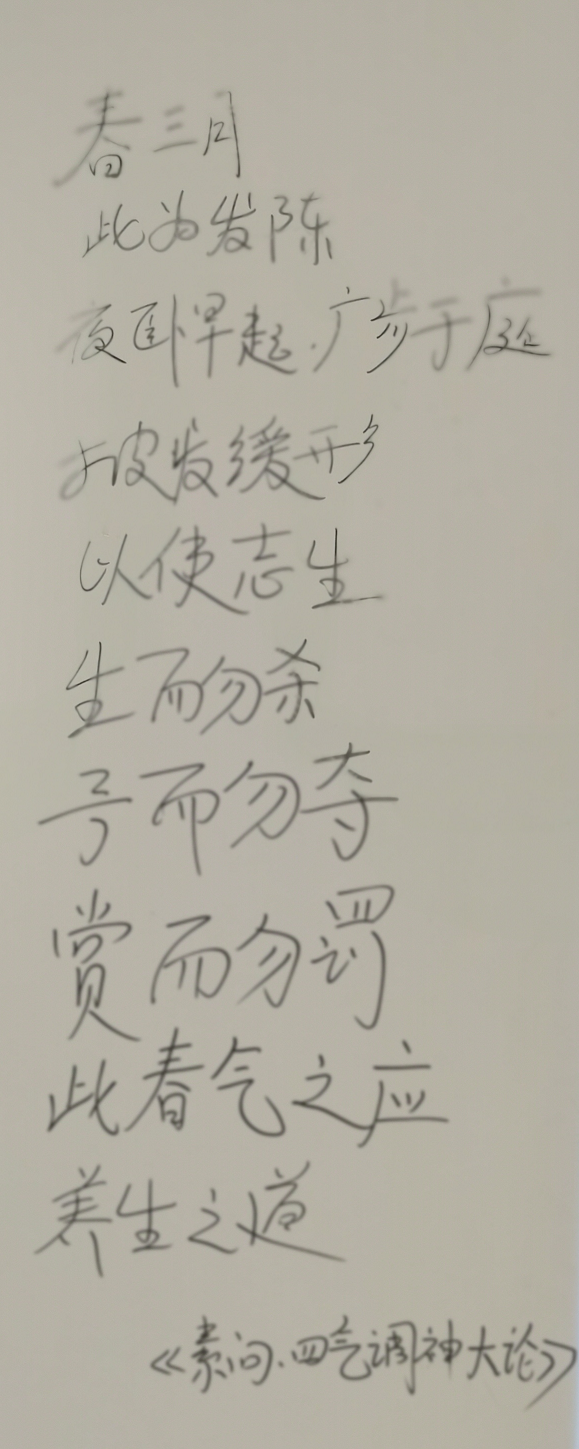 春三月
此为发陈
夜卧早起.广步于庭
披发缓形
以使志生
生而勿杀
予而勿夺
赏而勿罚
此春气之应
养生之道
《素问.四气调神大论》